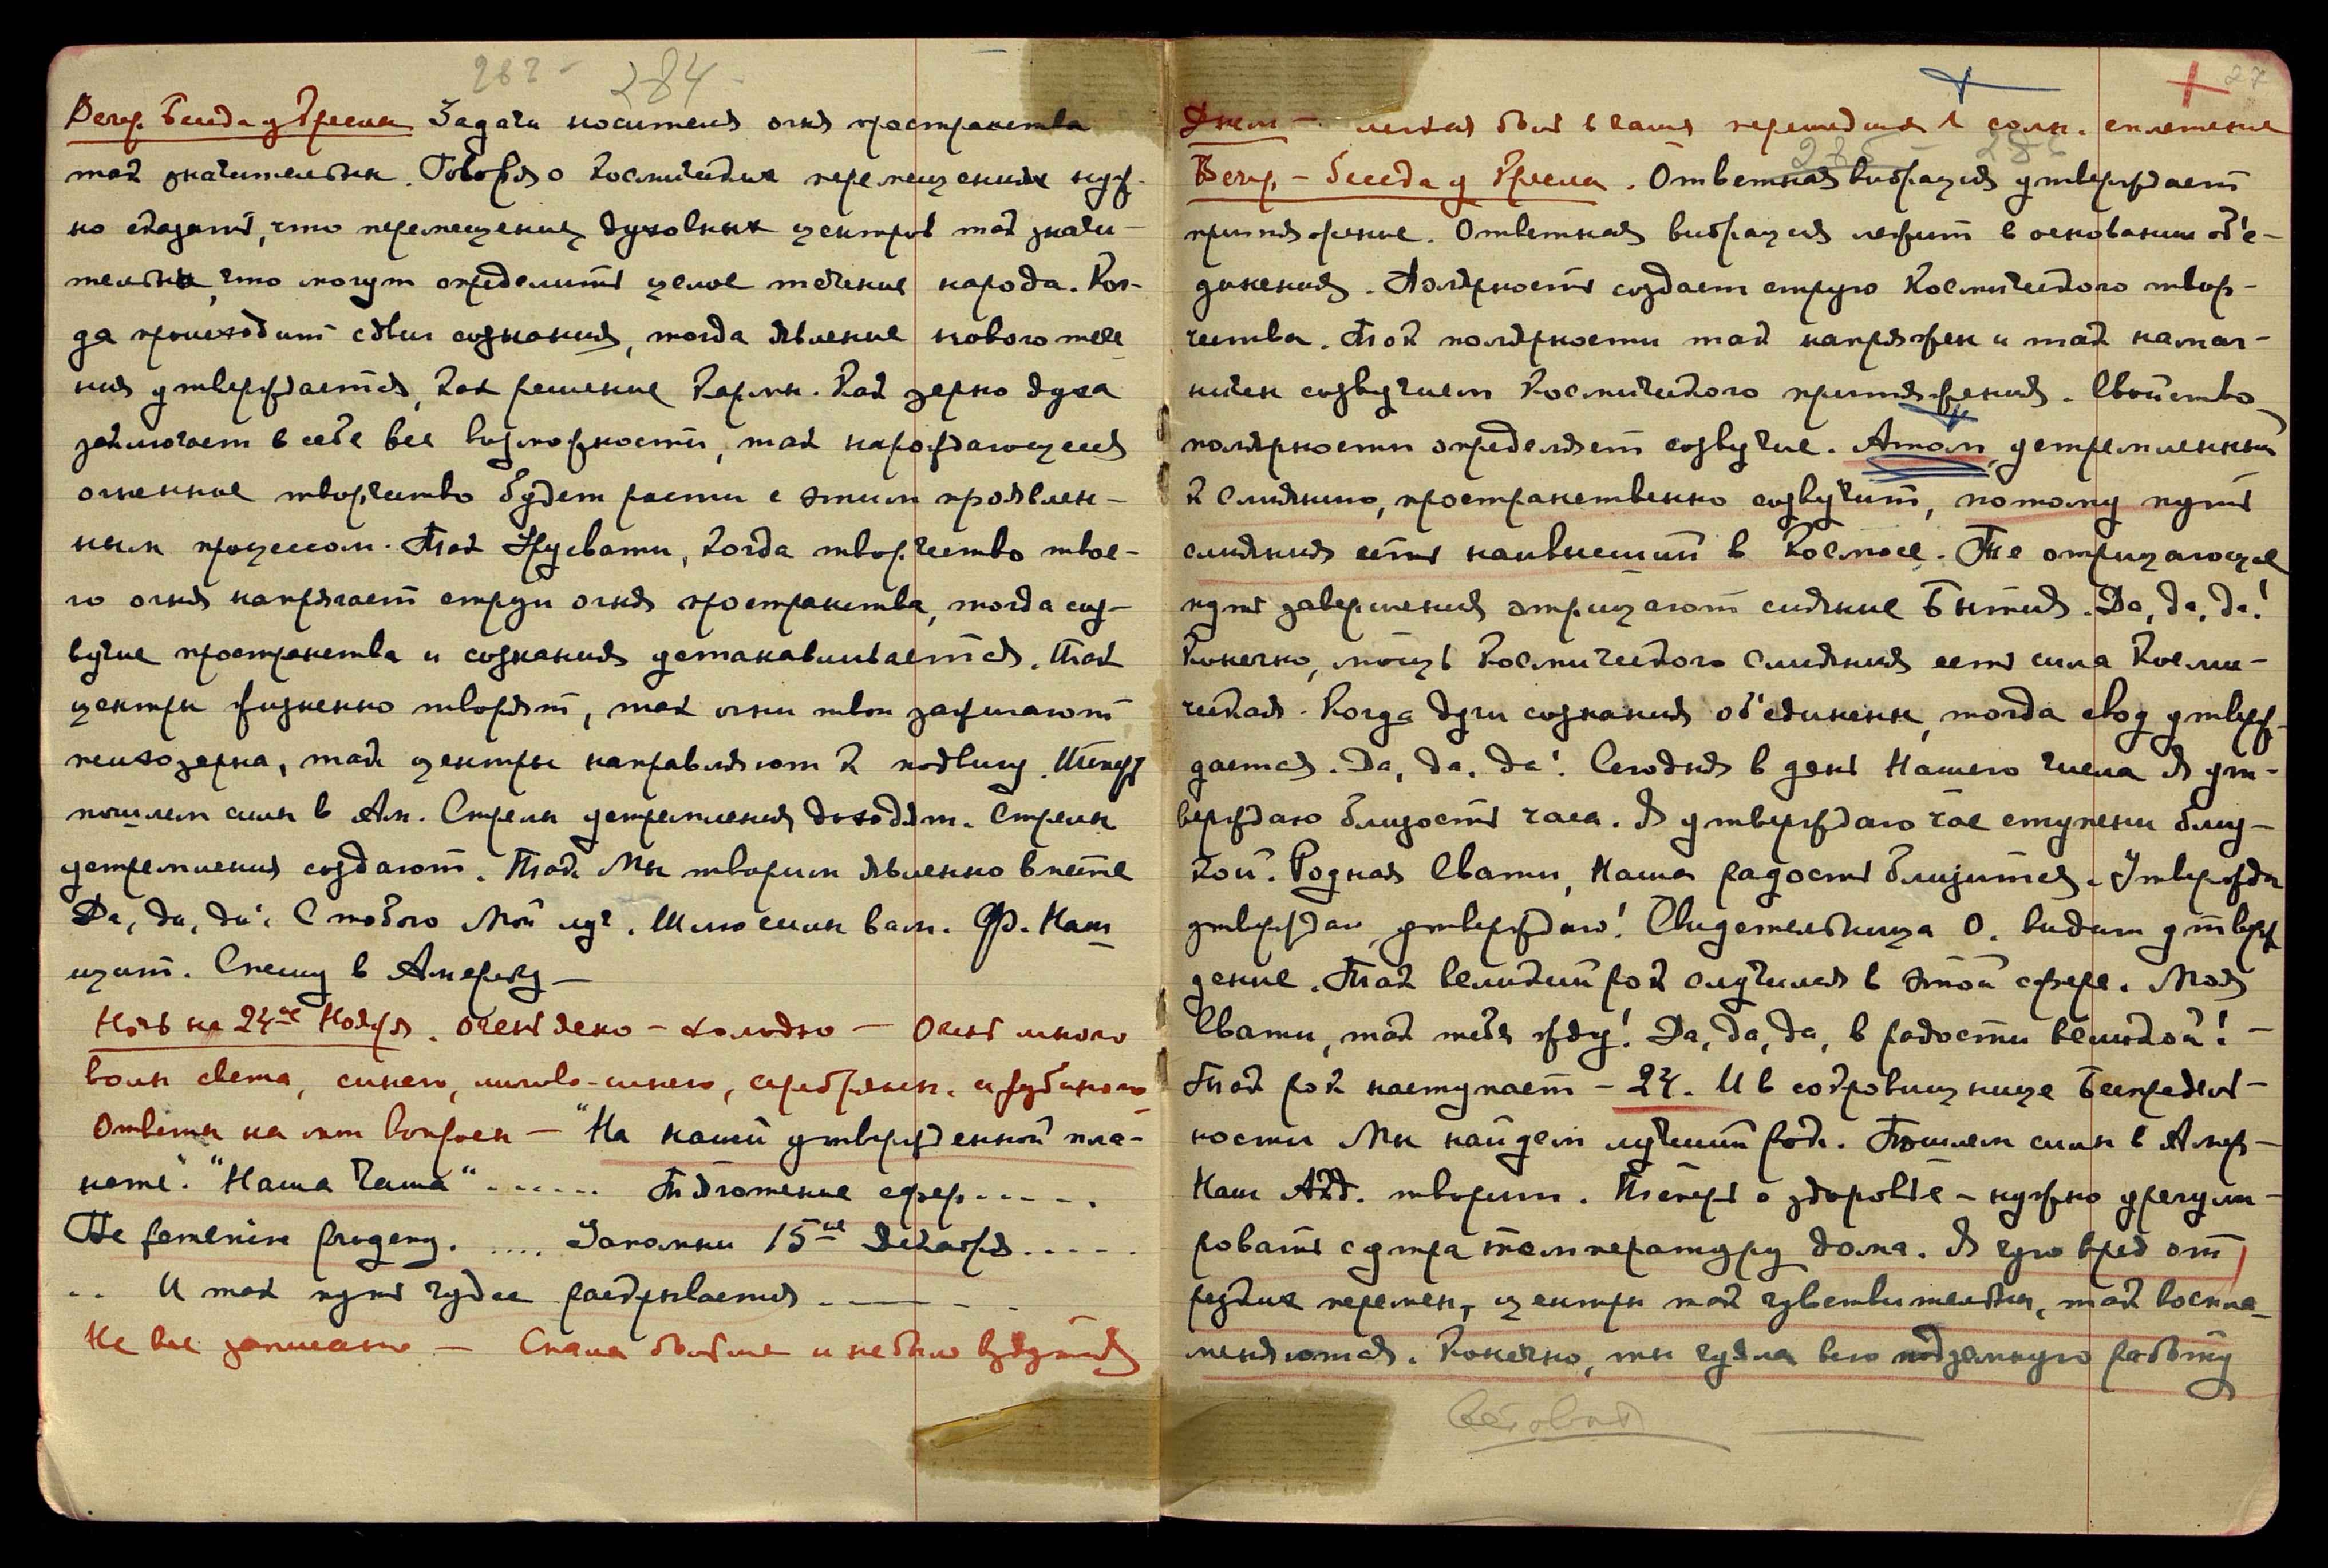 283 - 284 -
Вечер. Беседа у Кресла Задачи носителя огня пространства
так значительны. Говоря о космических перемещениях нуж-
но сказать, что перемещения духовных центров так значи-
тельны, что могут определить целое течение народа. Ког-
да происходит сдвиг сознания, тогда явление нового тече
ния утверждается, как решение Кармы. Как зерно духа
заключает в себе все возможности, так нарождающееся
огненное творчество будет расти с этим проявлен-
ным процессом. Так Урусвати, когда творчество твое-
го огня напрягает струи огня пространства, тогда соз-
вучие пространства и сознания устанавливается. Так
центры жизненно творят, так огни твои зажигают
психозерна, так центры направляют к подвигу. Теперь
пошлем силы в Ам. Стрелы устремления доходят. Стрелы
устремления создают. Так Мы творим явленно вместе
Да, да, да! С тобою Мой луч. Шлю силы вам. Ф. Наш
щит. Спешу в Америку —
Ночь на 24ое Ноября. очень ясно – холодно — Очень много
волн света, синего, лилово-синего, серебрян. и рубинового
Ответы на мои вопросы — "На нашей утвержденной пла-
нете". "Наша Чаша" ...... Поглощение сфер .....
The feminine progeny. .... Запомни 15ое Декабря .....
.. И так путь чудес раскрывается . — — - .
Не все записано — Спала больше и не было
27
Днем – легкая боль в чаше перешедшая в солн. сплетение
285 286
Вечер. – беседа у Кресла. Ответная вибрация утверждает
притяжение. Ответная вибрация лежит в основании об'е-
динения. Полярность создает струю Космического твор-
чества. Ток полярности так напряжен и так намаг-
ничен созвучием Космического притяжения. Свойство
полярности определяет созвучие. Атом, устремленный
к слиянию, пространственно созвучит, потому путь
слияния есть наивысший в Космосе. Те отрицающие
путь завершения отрицают сияние Бытия. Да, да, да!
Конечно, мощь Космического слияния есть сила Косми-
ческая. Когда дуги сознания об'единены, тогда свод утверж-
дается. Да, да, да! Сегодня в день Нашего числа Я ут-
верждаю близость часа. Я утверждаю час ступени близ-
кой. Родная Свати, Наша радость близится. Утверждаю
утверждаю, утверждаю! Свидетельница О. видит утверж
дение. Так великий рок случился в этой сфере. Моя
Свати, так тебя жду! Да, да, да, в радости великой! –
Так рок наступает – 24. И в сокровищнице Беспредель-
ности Мы найдем лучший рок. Пошлем силы в Амер-
Наш творит. Теперь о здоровье – нужно урегули-
ровать с утра температуру дома. Я чую вред от
резких перемен, центры так чувствительны, так воспла-
меняются. Конечно, ты чуяла всю подземную работу